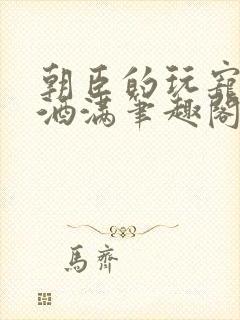 朝臣的玩寵
酒满筆趣閣
馬齊